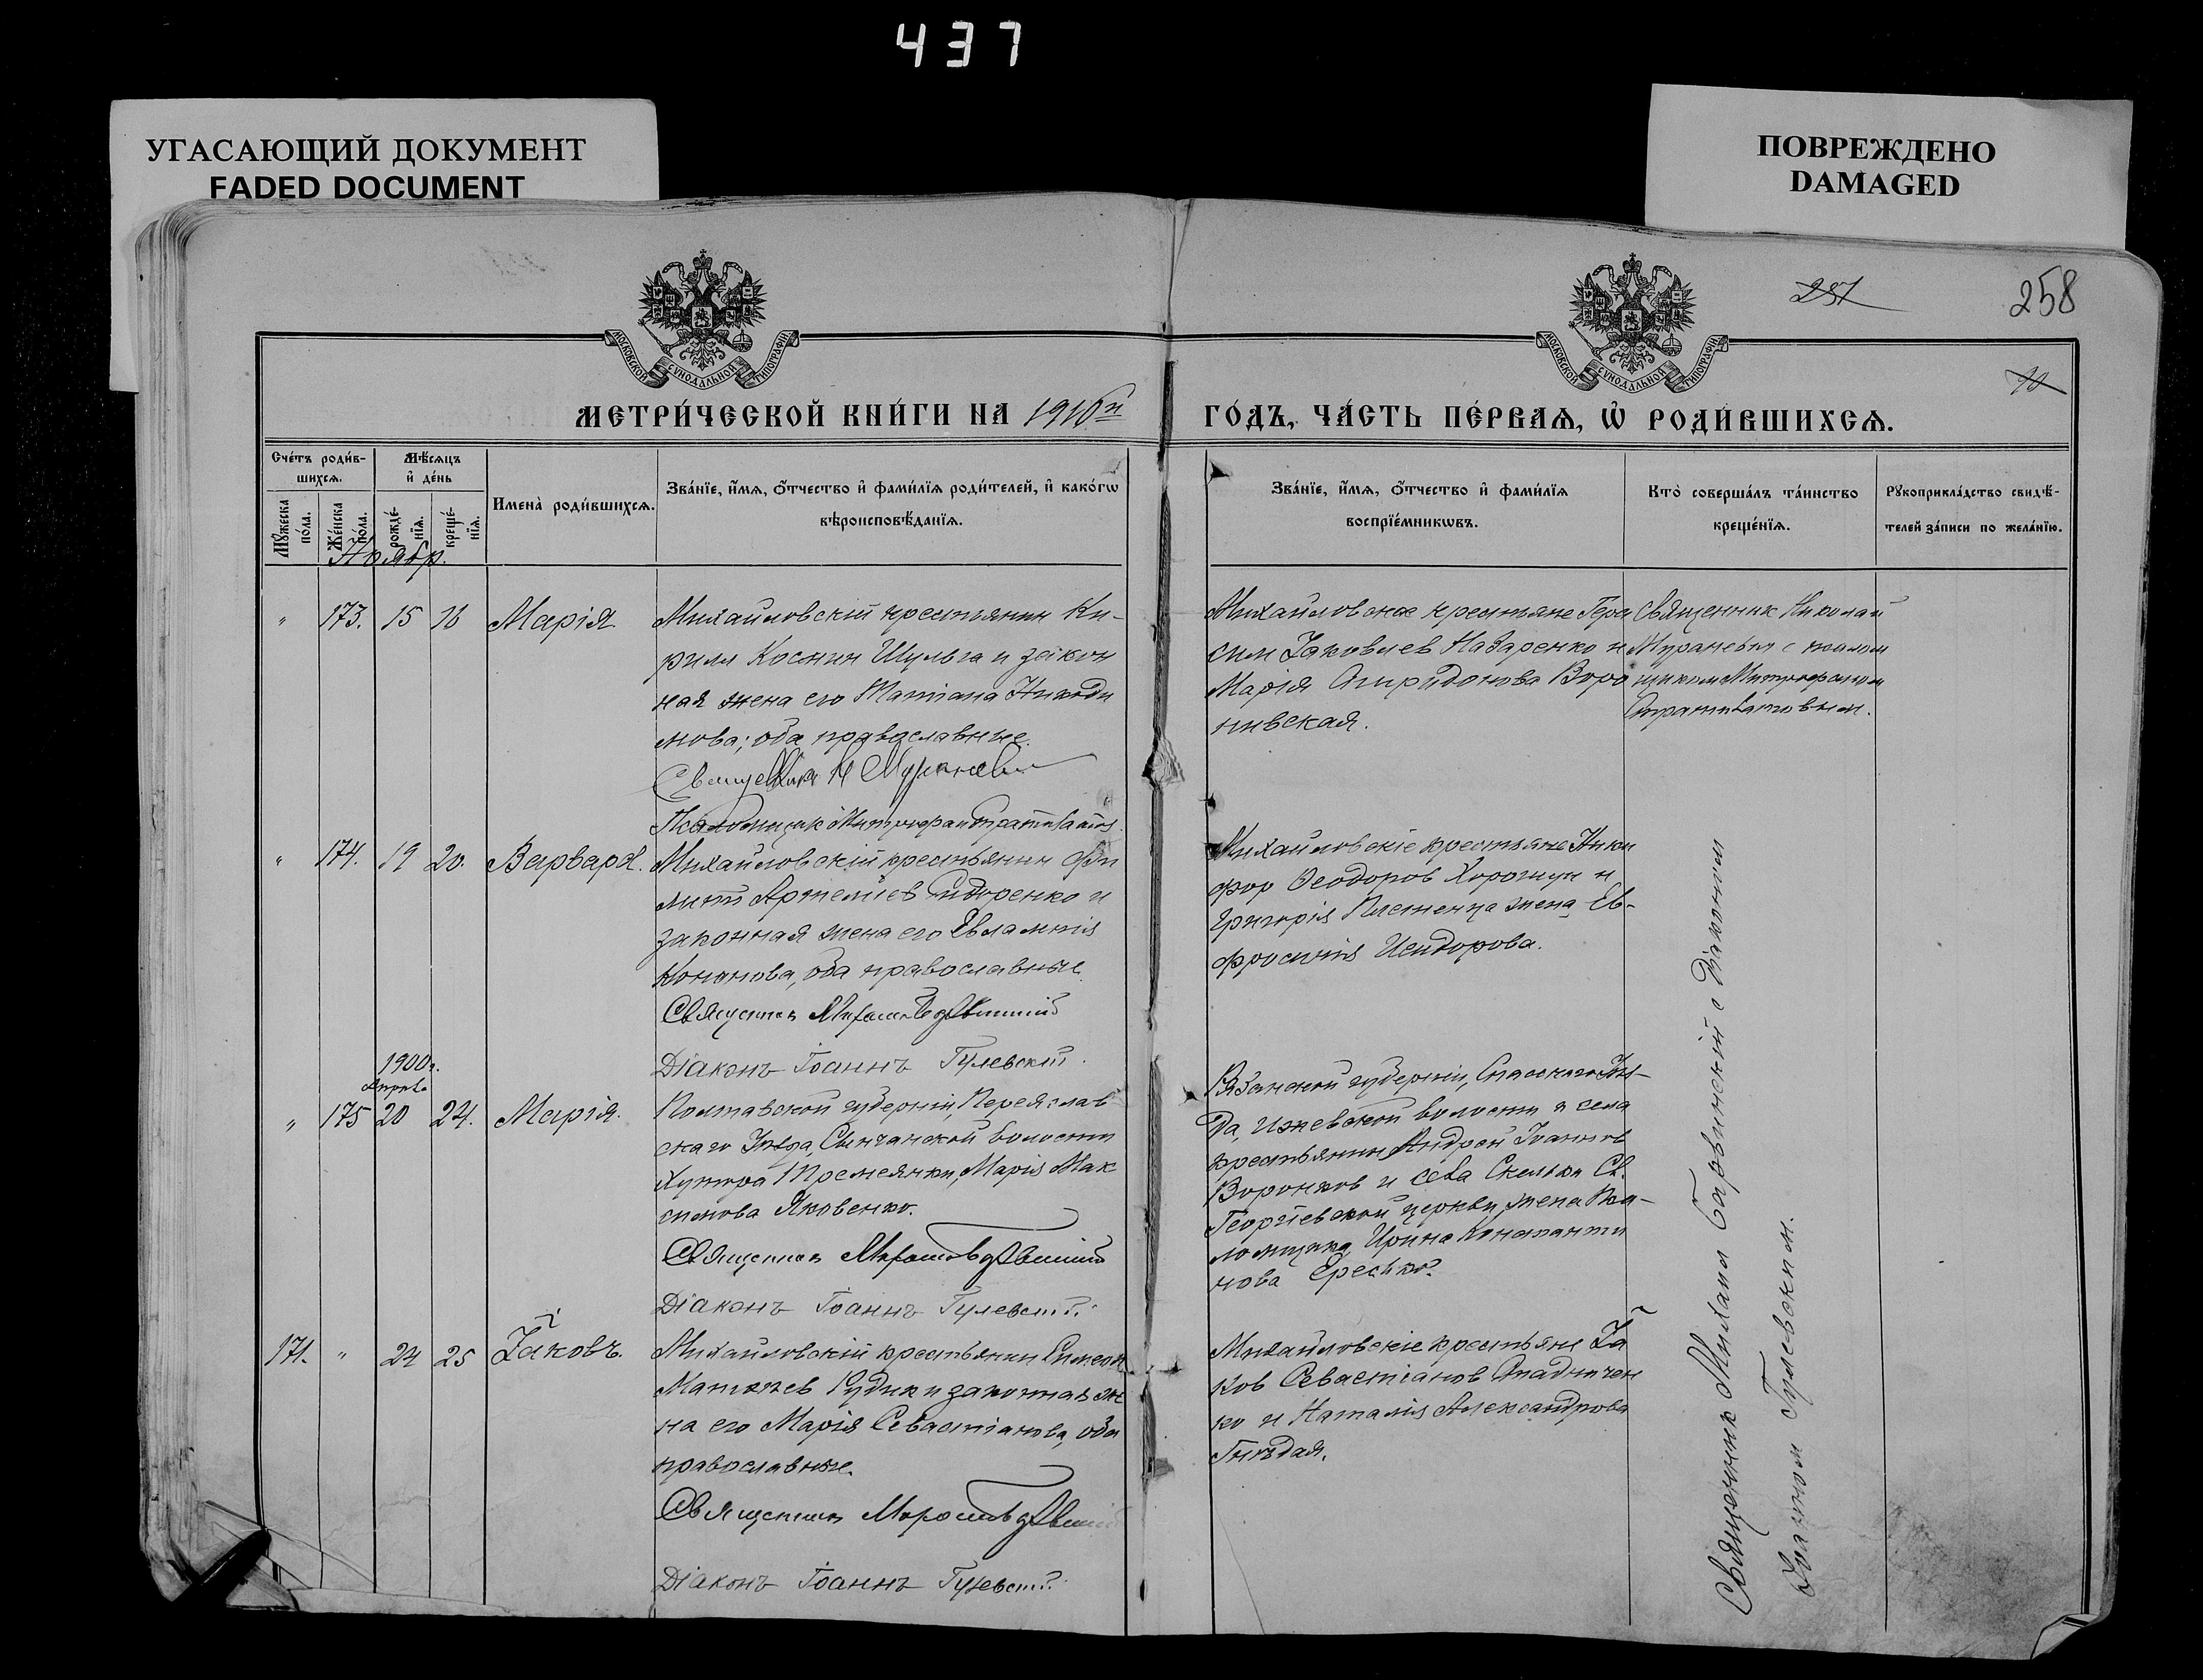 437
УГАСАЮЩИЙ ДОКУМЕНТ
FADED DOCUMENT
ПОВРЕЖДЕНО
DAMAGED
251
258
10
МОСКОВСКОЙ СУНОДАЛЬНОЙ ТИПОГРАФІИ
МОСКОВСКОЙ СУНОДАЛЬНОЙ ТИПОГРАФІИ
МЕТРИ́ЧЕСКОЙ КНИ́ГИ НА 1916й
ГО́ДЪ, ЧА́СТЬ ПЕ́РВАѦ, Ѿ РОДИ́ВШИХСѦ.
Сче́тъ роди́в-
шихсѧ.
Мѣ́сѧцъ
и҆ де́нь
Мꙋ́жеска по́ла.
Же́нска по́ла.
рожде́-нїѧ.
креще́-нїѧ.
И҆мена̀ роди́вшихсѧ.
Зва́нїе, и҆́мѧ, ѻ҆́тчество и҆ фами́лїѧ роди́телей, и҆ како́гѡ
вѣроисповѣ́данїѧ.
Зва́нїе, и҆́мѧ, ѻ҆́тчество и҆ фами́лїѧ
воспрїе́мникѡвъ.
Кто̀ соверша́лъ та́инство
креще́нїѧ.
Рꙋкоприкла́дство свидѣ́-
телей за́писи по жела́нїю.
Ноябр.
" 173. 15 16 Марія
Михайловскій крестьянин Ки-
рилл Космин Шульга и закон
ная жена его Татіана Никоди
мова; оба православные.
Священник Н Мураневич
Псаломщик Митрофан
Михайловскіе крестьяне Гера
сим Іаковлев Назаренко и
Марія Спиридонова Воро
нивская.
Священник Николай
Мураневич с псалом
щиком Митрофаном
" 174. 19 20. Варвара.
Михайловскій крестьянин Фи
липп Артеміев Сидоренко и
законная жена его Евлампія
Кононова, оба православные
Священник
Діаконъ Іоаннъ Гулевскій.
Михайловскіе крестьяне Ники
фор Ѳеодоров Хорошун и
Григорія жена Ев-
фросинія Исидорова.
1900г.
Апрѣль
" 175 20 24. Марія.
Полтавской губерніи, Переяслав
скаго Уѣзда, волости
Хутора Марія Мак
симова Яковенко.
Священник
Діаконъ Іоаннъ Гулевскій.
Рязанской губерніи, Спасскаго Уѣз-
да, Ижевской волости и села
крестьянин Андрей Іоаннов
Воронков и села Скельки Св.
Георгіевской церкви жена Пса-
ломщика Ирина Константи
нова Ересько.
171. " 24 25 Іаковъ.
Михайловскій крестьянин Симеон
Матѳіев Рудик и законная же
на его Марія Севастіанова, оба
православные.
Священник
Діаконъ Іоаннъ Гулевскій.
Михайловскіе крестьяне Іа
ков Севастіанов
ко и Наталія Александрова
Гнѣдая.
Священник Михаил Барвинскій с Діаконом
Іоанном Гулевским.